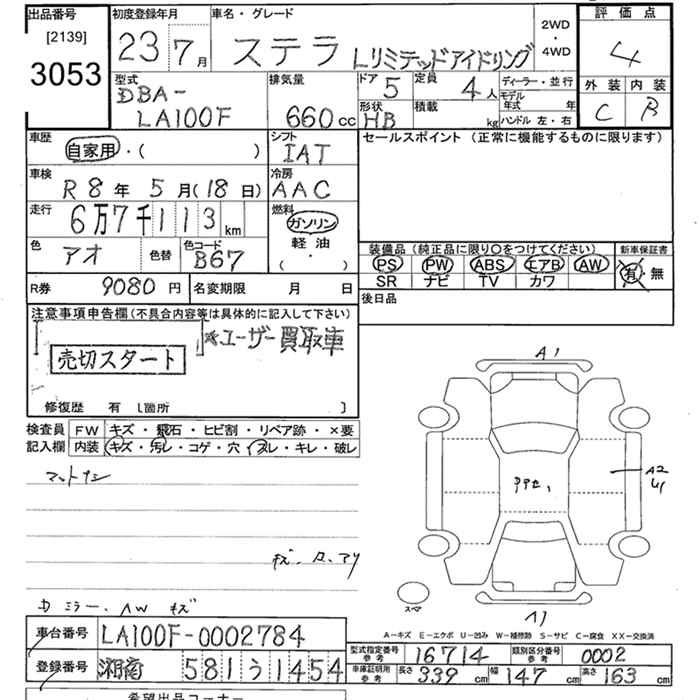 出品番号 初度登録年月 車名・グレード 2WD・4WD 評価点
[2139]
3053
23年7月 ステラ Lリミテッドアイドリング 4
外装 内装
C B
型式 排気量 ドア 定員 ディーラー・並行
DBA-
LA100F 660cc 5 4人
モデル年式 年
形状 積載 kg ハンドル 左・右
HB
車歴 シフト セールスポイント (正常に機能するものに限ります)
自家用・( ) IAT
車検 冷房
R8年5月(18日) AAC
走行 燃料
6万7千113km ガソリン
軽油
( ・ )
色 色替 色コード
アオ B67
装備品 (純正品に限り○をつけてください) 新車保証書
PS PW ABS エアB AW 有・無
SR ナビ TV カワ
R券 9080円 名変期限 月 日
後日品
注意事項申告欄(不具合内容等は具体的に記入して下さい)
※ユーザー買取車
売切スタート
修復歴 有 [箇所 ]
検査員記入欄 FW キズ・飛石・ヒビ割・リペア跡・×要
内装 キズ・汚レ・コゲ・穴・スレ・キレ・破レ
マットナシ
A1
A2
スペア
A1
D ミラー、AW キズ
A-キズ E-エクボ U-凹み W-補修跡 S-サビ C-腐食 XX-交換済
車台番号 LA100F-0002784
型式指定番号参考 16714 類別区分番号参考 0002
登録番号 湘南 581 う 1454
車庫証明用参考 長さ 339cm 幅 147cm 高さ 163cm
希望出品コーナー